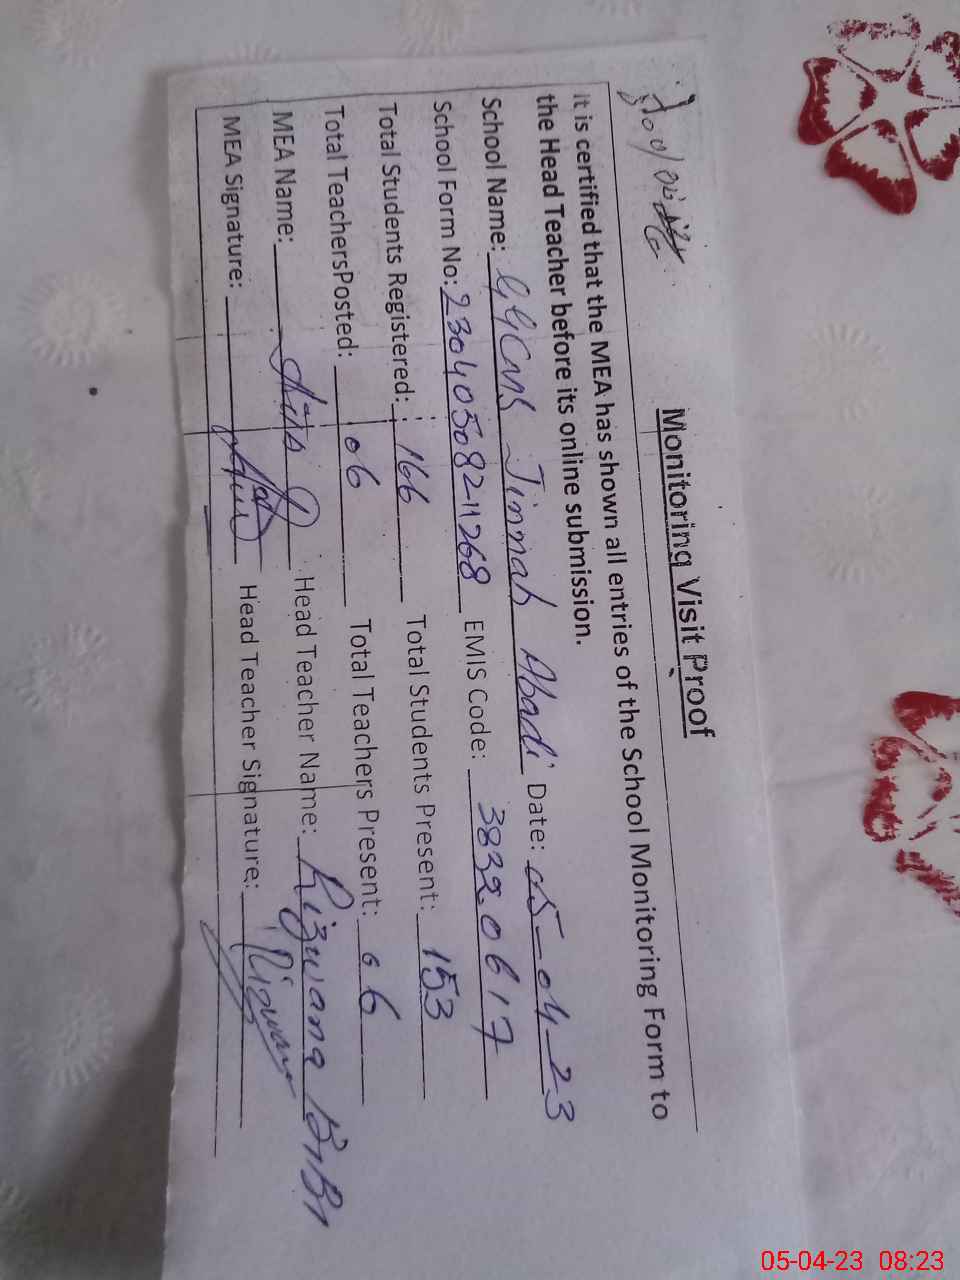 Monitoring Visit Proof
It is certified that the MEA has shown all entries of the School Monitoring Form to
the Head Teacher before its online submission.
School Name: GGCMS Jinnah Abadi Date: 05-04-23
School Form No: 23040508211268 EMIS Code: 38320617
Total Students Registered: 166 Total Students Present: 153
Total TeachersPosted: 06 Total Teachers Present: 06
MEA Name: Head Teacher Name: Rizwana BiBi
MEA Signature: Head Teacher Signature: Rizwana
05-04-23 08:23